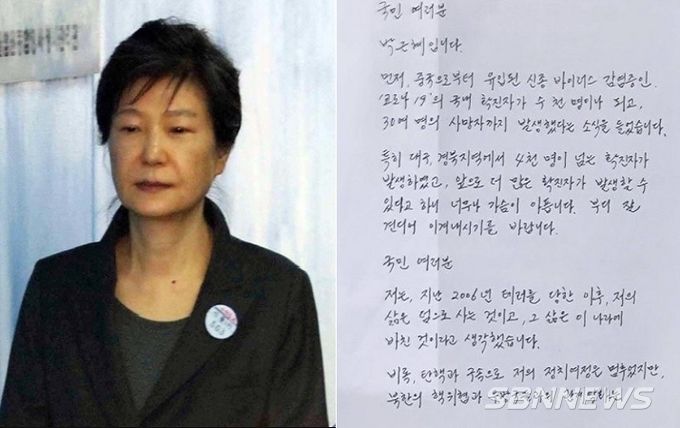 국민 여러분
박근혜입니다.
먼저, 중국으로부터 유입된 신종 바이러스 감염증인
'코로나 19'의 국내 확진자가 수 천 명이나 되고,
30여 명의 사망자까지 발생했다는 소식을 들었습니다.
특히 대구, 경북지역에서 4천 명이 넘는 확진자가
발생하였고, 앞으로 더 많은 확진자가 발생할 수
있다고 하니 너무나 가슴이 아픕니다. 부디 잘
견디어 이겨내시기를 바랍니다.
국민 여러분
저는, 지난 2006년 테러를 당한 이후, 저의
삶은 덤으로 사는 것이고, 그 삶은 이 나라에
바친 것이라고 생각했습니다.
비록, 탄핵과 구속으로 저의 정치여정은 멈추었지만,
북한의 핵위협과
SBNNEWS
503